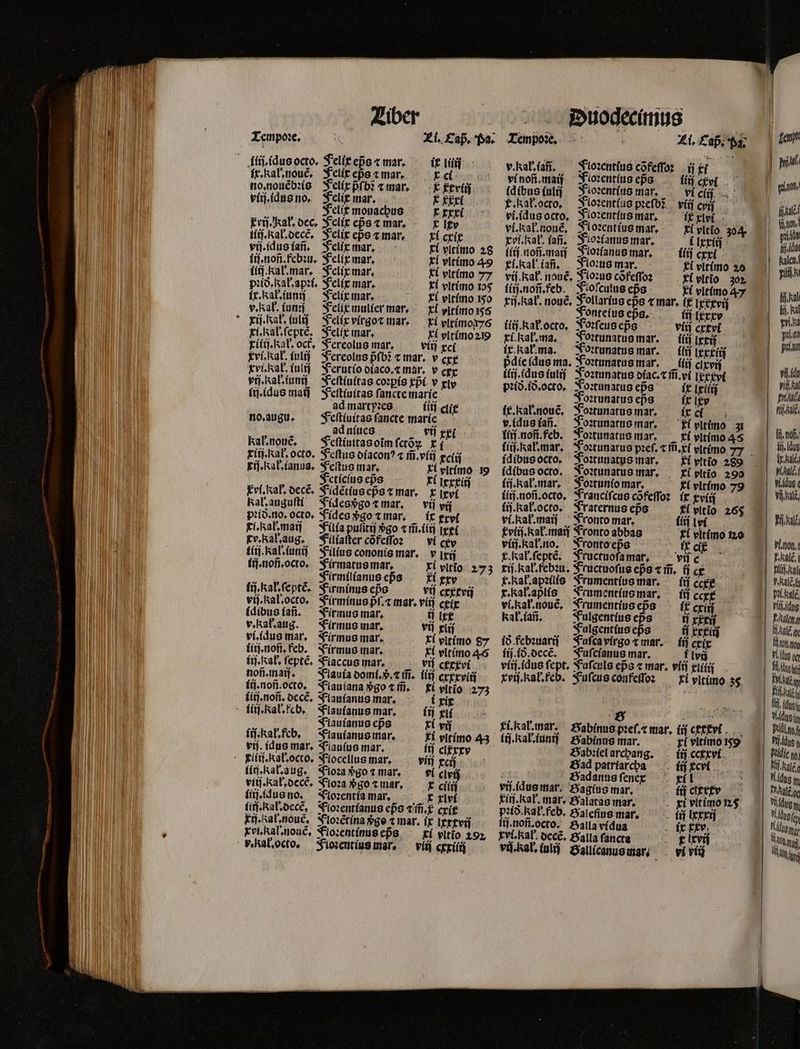 Liber
Duodecimus
Tempoꝛe. Li. Cap̄. Pa.
iiij.idus octo. Felix ep̄s ⁊ mar. ix liiij
ix.kal̄.nouē. Felix ep̄s ⁊ mar. x ci
no.nouēbꝛis Felix p̄ſbꝫ ⁊ mar. x xxviij
viij.idus no. Felix mar. x xxxi
Felix monachus x xxxi
xvij.kal̄.dec. Felix ep̄s ⁊ mar. x lxv
iiij.kal̄.decē. Felix ep̄s ⁊ mar. xi cxix
vij.idus iañ. Felix mar. xi vltimo 28
iij.noñ.febꝛu. Felix mar. xi vltimo 49
iiij.kal̄.mar. Felix mar. xi vltimo 77
pꝛid̄.kal̄.apꝛi. Felix mar. xi vltimo 105
ix.kal̄.iunij Felix mar. xi vltimo 150
v.kal̄.iunij Felix mulier mar. xi vltimo 156
xij.kal̄.iulij Felix virgo⁊ mar. xi vltimo 176
xi.kal̄.ſeptē. Felix mar. xi vltimo 219
xiiij.kal̄.oct̄. Fereolus mar. viij xci
xvi.kal̄.iulij Fereolus p̄ſbꝫ ⁊ mar. v cxx
xvi.kal̄.iulij Ferutio diaco.⁊ mar. v cxx
vij.kal̄.iunij Feſtiuitas coꝛpis xp̄i v xlv
iij.idus maij Feſtiuitas ſancte marie
ad martyꝛes iiij clix
no.augu. Feſtiuitas ſancte marie
ad niues vij xxi
kal̄.nouē. Feſtiuitas oim ſctōꝝ x i
xiij.kal̄.octo. Feſtus diacon⁹ ⁊ m̄.viij xciij
xij.kal̄.ianua. Feſtus mar. xi vltimo 19
Feticius ep̄s xi lxxxiij
xvi.kal̄.decē. Fidētius ep̄s ⁊ mar. x lxvi
kal̄.auguſti Fides v̄go ⁊ mar. vij vij
pꝛid̄.no.octo. Fides v̄go ⁊ mar. ix xxvi
xi.kal̄.maij Filia pulitij v̄go ⁊ m̄.iiij lxxi
xv.kal̄.aug. Filiaſter cōfeſſoꝛ vi cxv
iiij.kal̄.iunij Filius cononis mar. v lxij
iij.noñ.octo. Firmatus mar. xi vltīo 273
Firmilianus ep̄s xi xxv
iij.kal̄.ſeptē. Firminus ep̄s vij cxxxvij
vij.kal̄.octo. Firminus p̄ſ.⁊ mar. viij cxix
idibus iañ. Firmus mar. ij lxx
v.kal̄.aug. Firmus mar. vij xiij
vi.idus mar. Firmus mar. xi vltimo 87
iiij.noñ.feb. Firmus mar. xi vltimo 46
iij.kal̄.ſeptē. Flaccus mar. vij cxxxvi
noñ.maij. Flauia domi.v̄.⁊ m̄. iiij cxxxviij
iij.noñ.octo. Flauiana v̄go ⁊ m̄. xi vltīo 273
iiij.noñ.decē. Flauianus mar. i xix
iiij.kal̄.feb. Flauianus mar. iij xli
Flauianus ep̄s xi vij
iij.kal̄.feb. Flauianus mar. xi vltimo 43
vij.idus mar. Flauius mar. iij clxxxv
xiiij.kal̄.octo. Flocellus mar. viij xcij
iiij.kal̄.aug. Floꝛa v̄go ⁊ mar. vi clvij
viij.kal̄.decē. Floꝛa v̄go ⁊ mar. x ciiij
iiij.idus no. Floꝛentia mar. x xlvi
iiij.kal̄.decē. Floꝛentianus ep̄s ⁊ m̄.x cxix
xij.kal̄.nouē. Floꝛētina v̄go ⁊ mar. ix lxxxvij
xvi.kal̄.nouē. Floꝛentinus ep̄s xi vltīo 292
v.kal̄.octo. Floꝛentius mar. viij cxxiiij
Tempoꝛe. Li. Cap̄. Pa.
v.kal̄.iañ. Floꝛentius cōfeſſoꝛ ij xi
vi noñ.maij Floꝛentius ep̄s iiij cxvi
idibus iulij Floꝛentius mar. vi ciij
x.kal̄.octo. Floꝛentius pꝛeſbꝫ viij cvij
vi.idus octo. Floꝛentius mar. ix xlvi
vi.kal̄.nouē. Floꝛentius mar. xi vltīo 304
xvi.kal̄.iañ. Floꝛianus mar. i lxxiij
iiij noñ.maij Floꝛianus mar. iiij cxxi
xi.kal̄.iañ. Floꝛus mar. xi vltimo 20
vij.kal̄.nouē. Floꝛus cōfeſſoꝛ xi vltīo 302
iiij.noñ.feb. Floſculus ep̄s xi vltimo 47
xij.kal̄.nouē. Follarius ep̄s ⁊ mar. ix lxxxvij
Fonteius ep̄s. iij lxxxv
iiij.kal̄.octo. Foꝛſeus ep̄s viij cxxvi
xi.kal̄.ma. Foꝛtunatus mar. iiij lxxij
ix.kal̄.ma. Foꝛtunatus mar. iiij lxxxiij
p̄die idus ma. Foꝛtunatus mar. iiij clxvij
iiij.idus iulij Foꝛtunatus diac.⁊ m̄.vi lxxxvi
pꝛid̄.id̄.octo. Foꝛtunatus ep̄s ix lxiiij
Foꝛtunatus ep̄s ix lxv
ix.kal̄.nouē. Foꝛtunatus mar. ix ci
v.idus iañ. Foꝛtunatus mar. xi vltimo 31
iiij.noñ.feb. Foꝛtunatus mar. xi vltimo 45
iiij.kal̄.mar. Foꝛtunatus pꝛeſ.⁊ m̄.xi vltimo 77
idibus octo. Foꝛtunatus mar. xi vltīo 289
idibus octo. Foꝛtunatus mar. xi vltīo 290
iiij.kal̄.mar. Foꝛtunio mar. xi vltimo 79
iiij.noñ.octo. Franciſcus cōfeſſoꝛ ix xviij
iij.kal̄.octo. Fraternus ep̄s xi vltīo 265
vi.kal̄.maij Fronto mar. iiij lvi
xviij.kal̄.maij Fronto abbas xi vltimo 120
viij.kal̄.no. Fronto ep̄s ix cix
x.kal̄.ſeptē. Fructuoſa mar. vij c
xij.kal̄.febꝛu. Fructuoſus ep̄s ⁊ m̄. ij cx
x.kal̄.apꝛilis Frumentius mar. iij ccxx
x.kal̄.ap̄lis Frumentius mar. iij ccxx
vi.kal̄.nouē. Frumentius ep̄s ix cxiij
kal̄.iañ. Fulgentius ep̄s ij xxxij
Fulgentius ep̄s ij xxxiij
id̄.febꝛuarij Fuſca virgo ⁊ mar. iij cxix
iij.id̄.decē. Fuſcianus mar. i lvij
viij.idus ſept. Fuſculs ep̄s ⁊ mar. viij xliiij
xvij.kal̄.feb. Fuſcus confeſſoꝛ xi vltimo 35
G
xi.kal̄.mar. Gabinus pꝛeſ.⁊ mar. iij cxxxvi
iij.kal̄.iunij Gabinus mar. xi vltimo 159
Gabꝛiel archang. iij ccxxvi
Gad patriarcha iij xcvi
Gadanus ſenex xi l
vij.idus mar. Gagius mar. iij clxxxv
xiij.kal̄.mar. Galatas mar. xi vltimo 125
pꝛid̄.kal̄.feb. Galeſius mar. iij lxxxij
iij.noñ.octo. Galla vidua ix xxv
xvi.kal̄.decē. Galla ſancta x lxvij
vij.kal̄.iulij Gallicanus mar. vi viij